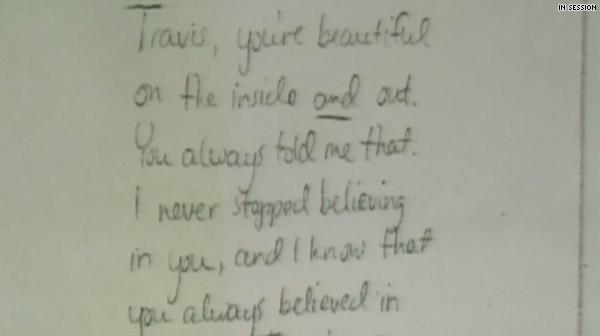 IN SESSION
Travis, you're beautiful
on the inside and out.
You always told me that.
I never stopped believing
in you, and I know that
you always believed in